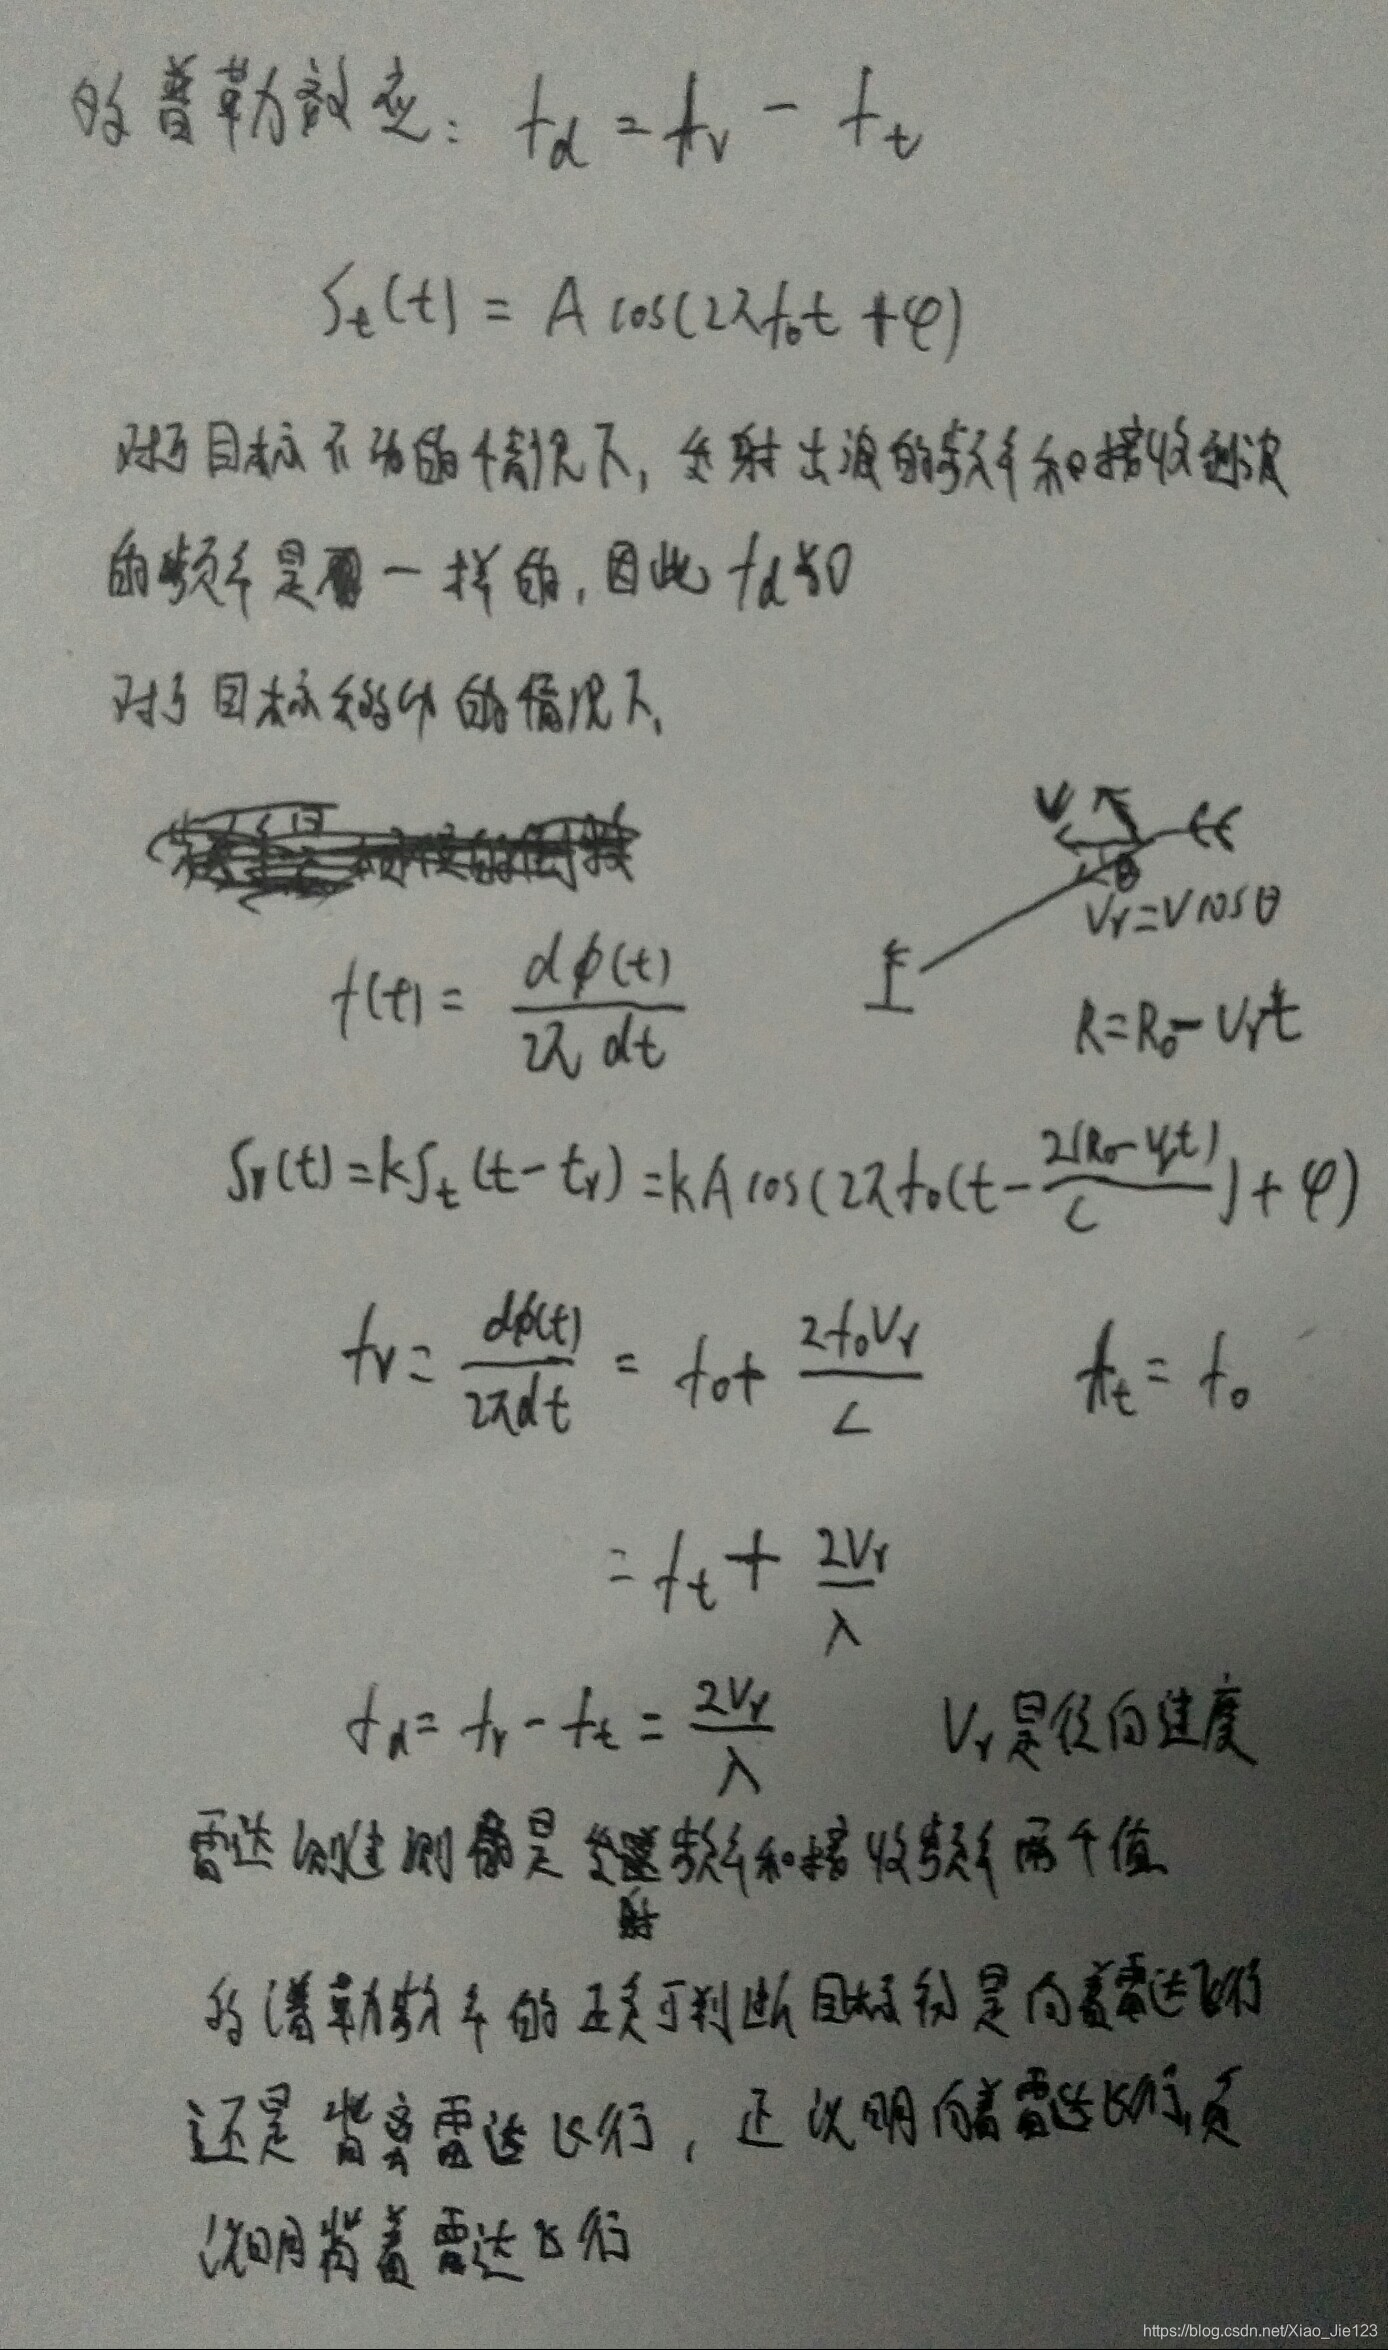 的普勒效应: fd = fr - ft
St(t) = A cos(2πf0t + φ)
对于目标不动的情况下, 发射出波的频率和接收到波
的频率是一样的, 因此 fd为0
对于目标移动的情况下,
V
θ
Vr = V cosθ
f(t) = dφ(t) / 2π dt
R = R0 - Vrt
Sr(t) = kSt(t - tr) = kA cos(2πf0(t - 2(R0 - Vrt) / c) + φ)
fr = dφ(t) / 2πdt = f0 + 2f0Vr / c ft = f0
= ft + 2Vr / λ
fd = fr - ft = 2Vr / λ Vr是径向速度
雷达测速测的是发射频率和接收频率两个值
的谱勒频率的正负可判断目标物是向着雷达飞行
还是背离雷达飞行, 正说明向着雷达飞行, 负
说明背着雷达飞行
https://blog.csdn.net/Xiao_Jie123